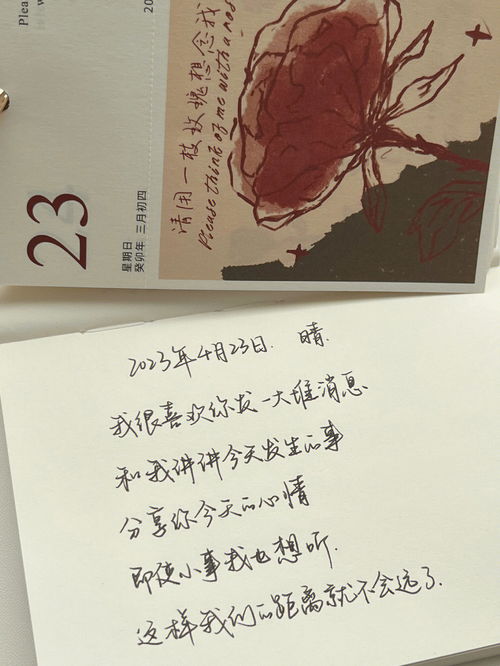 Pleas
w
20
请用一枝玫瑰想念我
Please think of me with a rose
23
星期日
癸卯年 三月初四
2023年4月23日. 晴.
我很喜欢你发一大堆消息
和我讲讲今天发生的事
分享你今天的心情
即使小事我也想听.
这样我们的距离就不会远了.